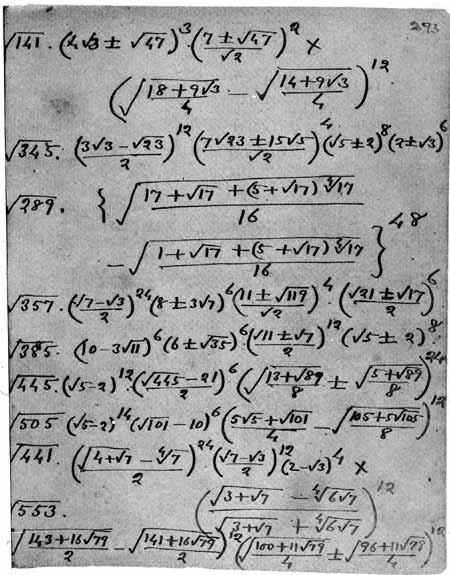 293
√141. (4√3 ± √47)^3 (7 ± √47 / √2)^2 ×
(√(18+9√3 / 4) − √(14+9√3 / 4))^12
√345. (3√3 − √23 / 2)^12 (7√23 ± 15√5 / √2)^4 (√5 ± 2)^8 (2 ± √3)^6
√289. {√(17 + √17 + (5+√17) ∜17 / 16)
− √(1 + √17 + (5 + √17) ∜17 / 16)}^48
√357. (√7 − √3 / 2)^24 (8 ± 3√7)^6 (11 ± √119 / √2)^4 (√21 ± √17 / 2)^6
√385. (10 − 3√11)^6 (6 ± √35)^6 (√11 ± √7 / 2)^12 (√5 ± 2)^8
√445. (√5 − 2)^12 (√445 − 21 / 2)^6 (√(13 + √89 / 8) ± √(5 + √89 / 8))^24
√505 (√5 − 2)^14 (√101 − 10)^6 (5√5 + √101 / 4 − √(105 + 5√105 / 8))^12
√441. (√(4 + √7) − ∜7 / 2)^24 (√7 − √3 / 2)^12 (2 − √3)^4 ×
(√(3 + √7) − ∜6√7 / √(3 + √7) + ∜6√7)^12
√553.
(√(143 + 16√79 / 2) − √(141 + 16√79 / 2))^12 (√(100 + 11√79 / 4) ± √(96 + 11√79 / 4))^12